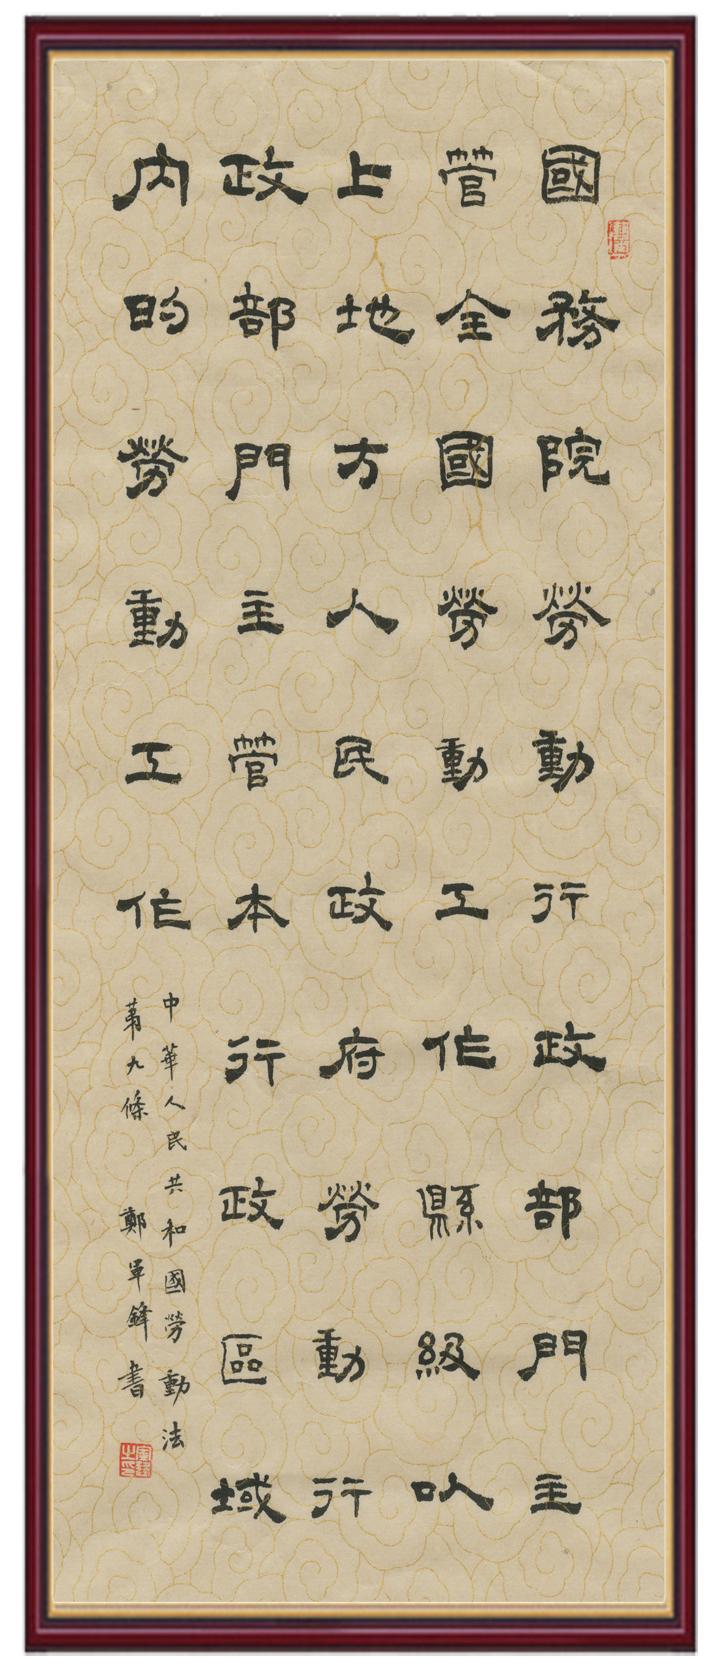 國務院勞動行政部門主
管全國勞動工作縣級以
上地方人民政府勞動行
政部門主管本行政區域
內的勞動工作
中華人民共和國勞動法
第九條 鄭軍鋒書